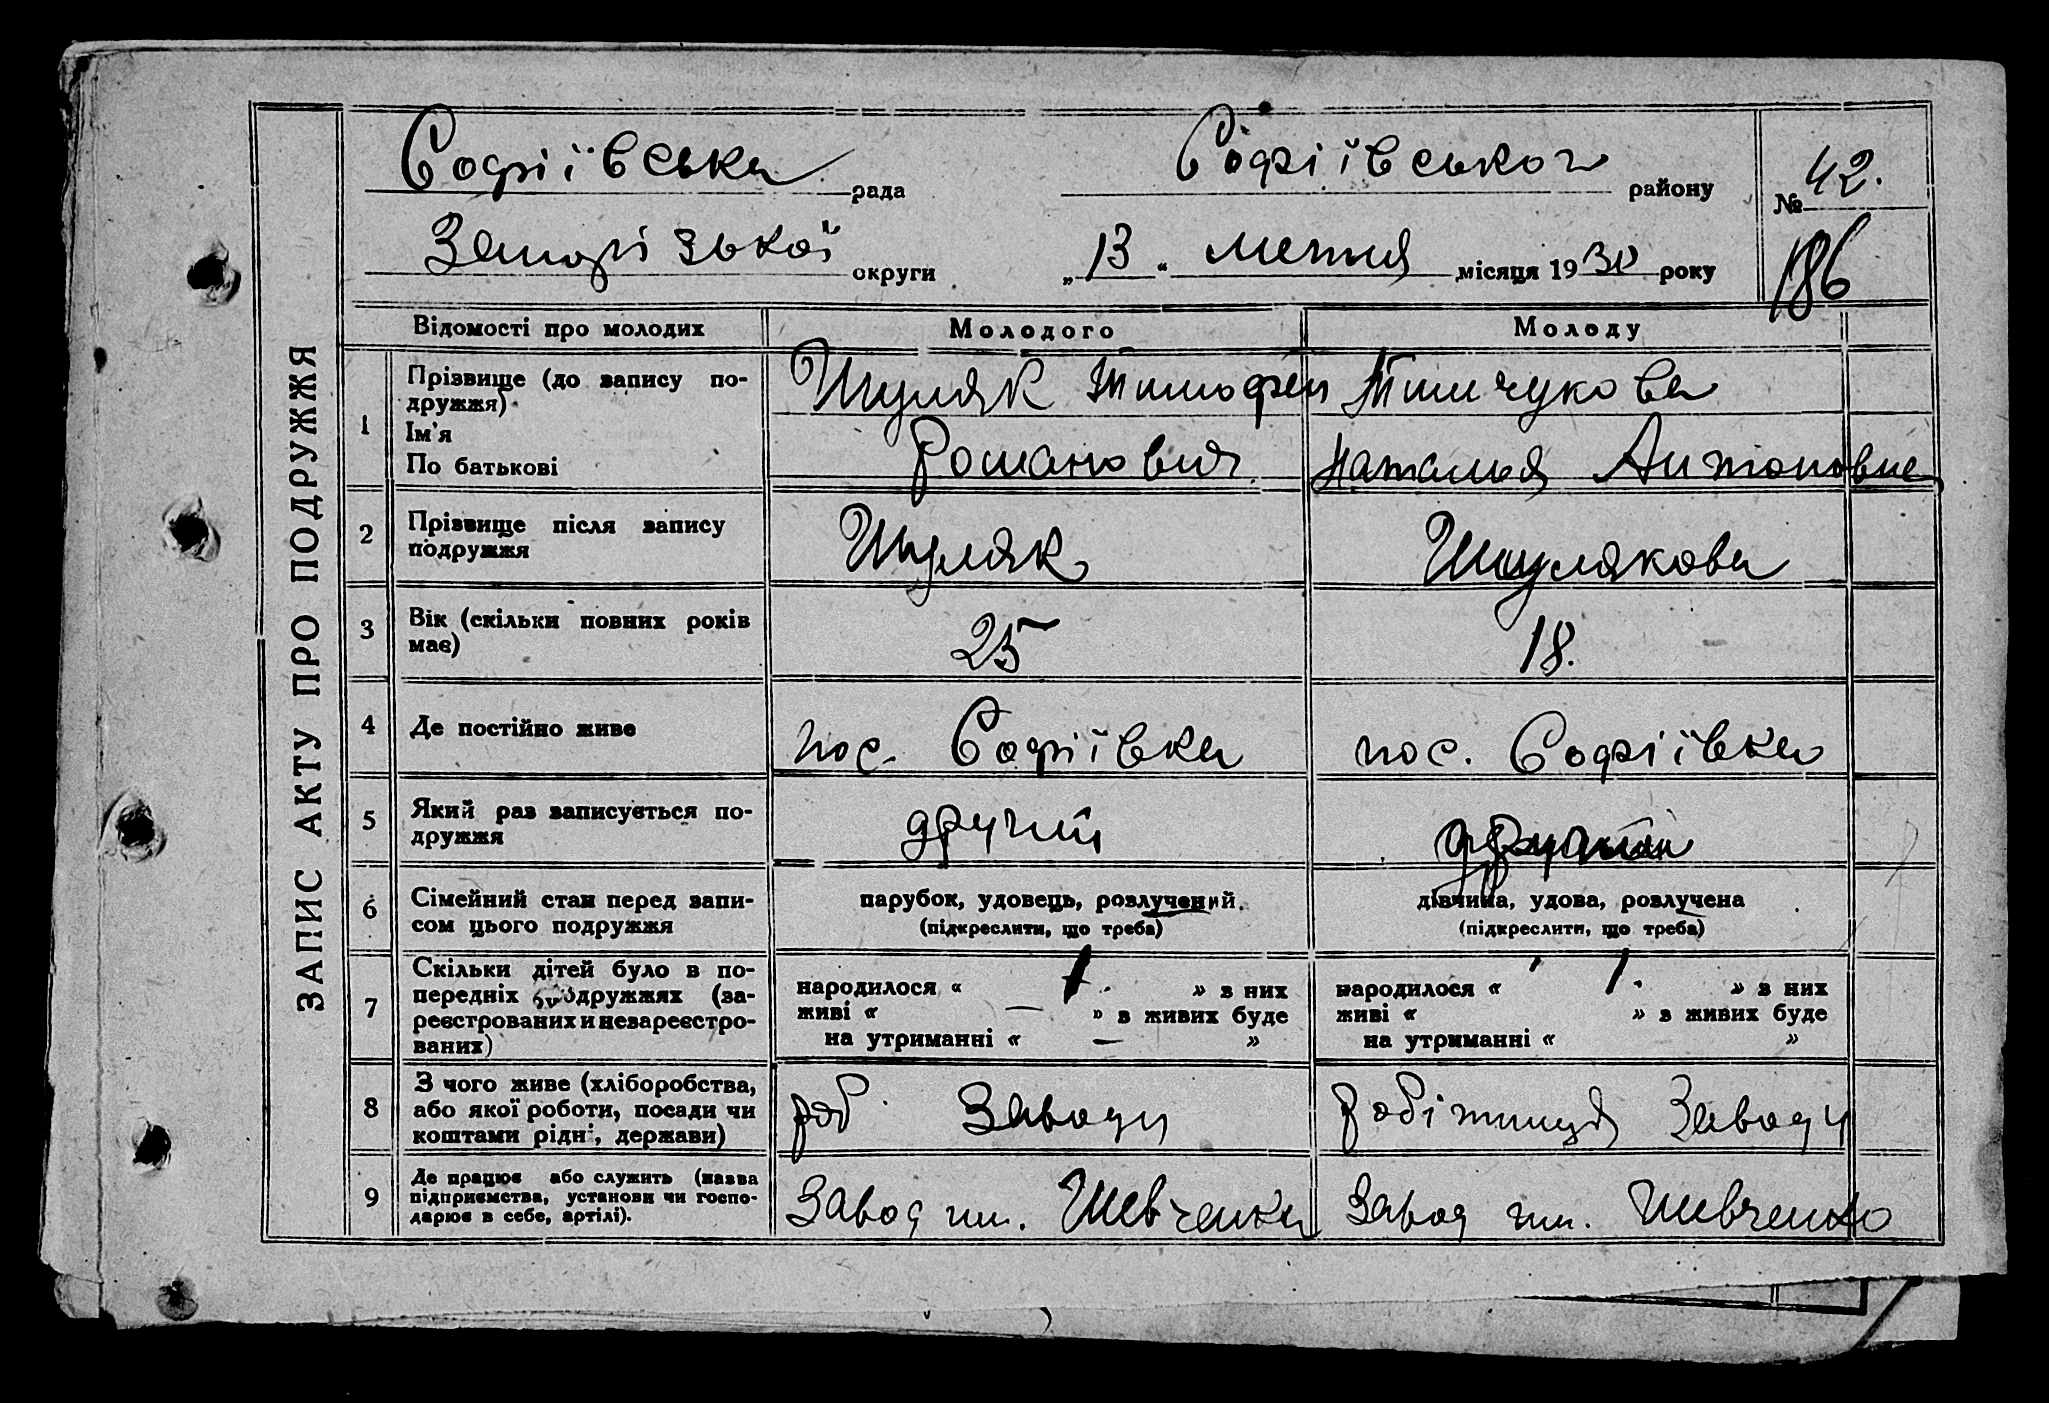 ЗАПИС АКТУ ПРО ПОДРУЖЖЯ
Софіївська рада
Софіївського району
№ 42.
Запорізької округи
„ 13 “ лютня місяця 1930 року
186
Відомості про молодих
Молодого
Молоду
1
Прізвище (до запису по-
дружжя)
Ім'я
По батькові
Шуляк Тимофей
Романович
Тимчукова
Наталья Антоновна
2
Прізвище після запису
подружжя
Шуляк
Шулякова
3
Вік (скільки повних років
має)
25
18.
4
Де постійно живе
пос. Софіївка
пос. Софіївка
5
Який раз записується по-
дружжя
другий
другий
6
Сімейний стан перед запи-
сом цього подружжя
парубок, удовець, розлучений.
(підкреслити, що треба)
дівчина, удова, розлучена
(підкреслити, що треба)
7
Скільки дітей було в по-
передніх подружжях (за-
реєстрованих и незареєстро-
ваних)
народилося « 1. » з них
живі « — » з живих буде
на утриманні « — »
народилося « 1. » з них
живі « » з живих буде
на утриманні « »
8
З чого живе (хліборобства,
або якої роботи, посади чи
коштами рідні, держави)
роб Заводу
робітниця Заводу
9
Де працює або служить (назва
підприємства, установи чи госпо-
дарює в себе, артілі).
Завод ім. Шевченка
Завод ім. Шевченко